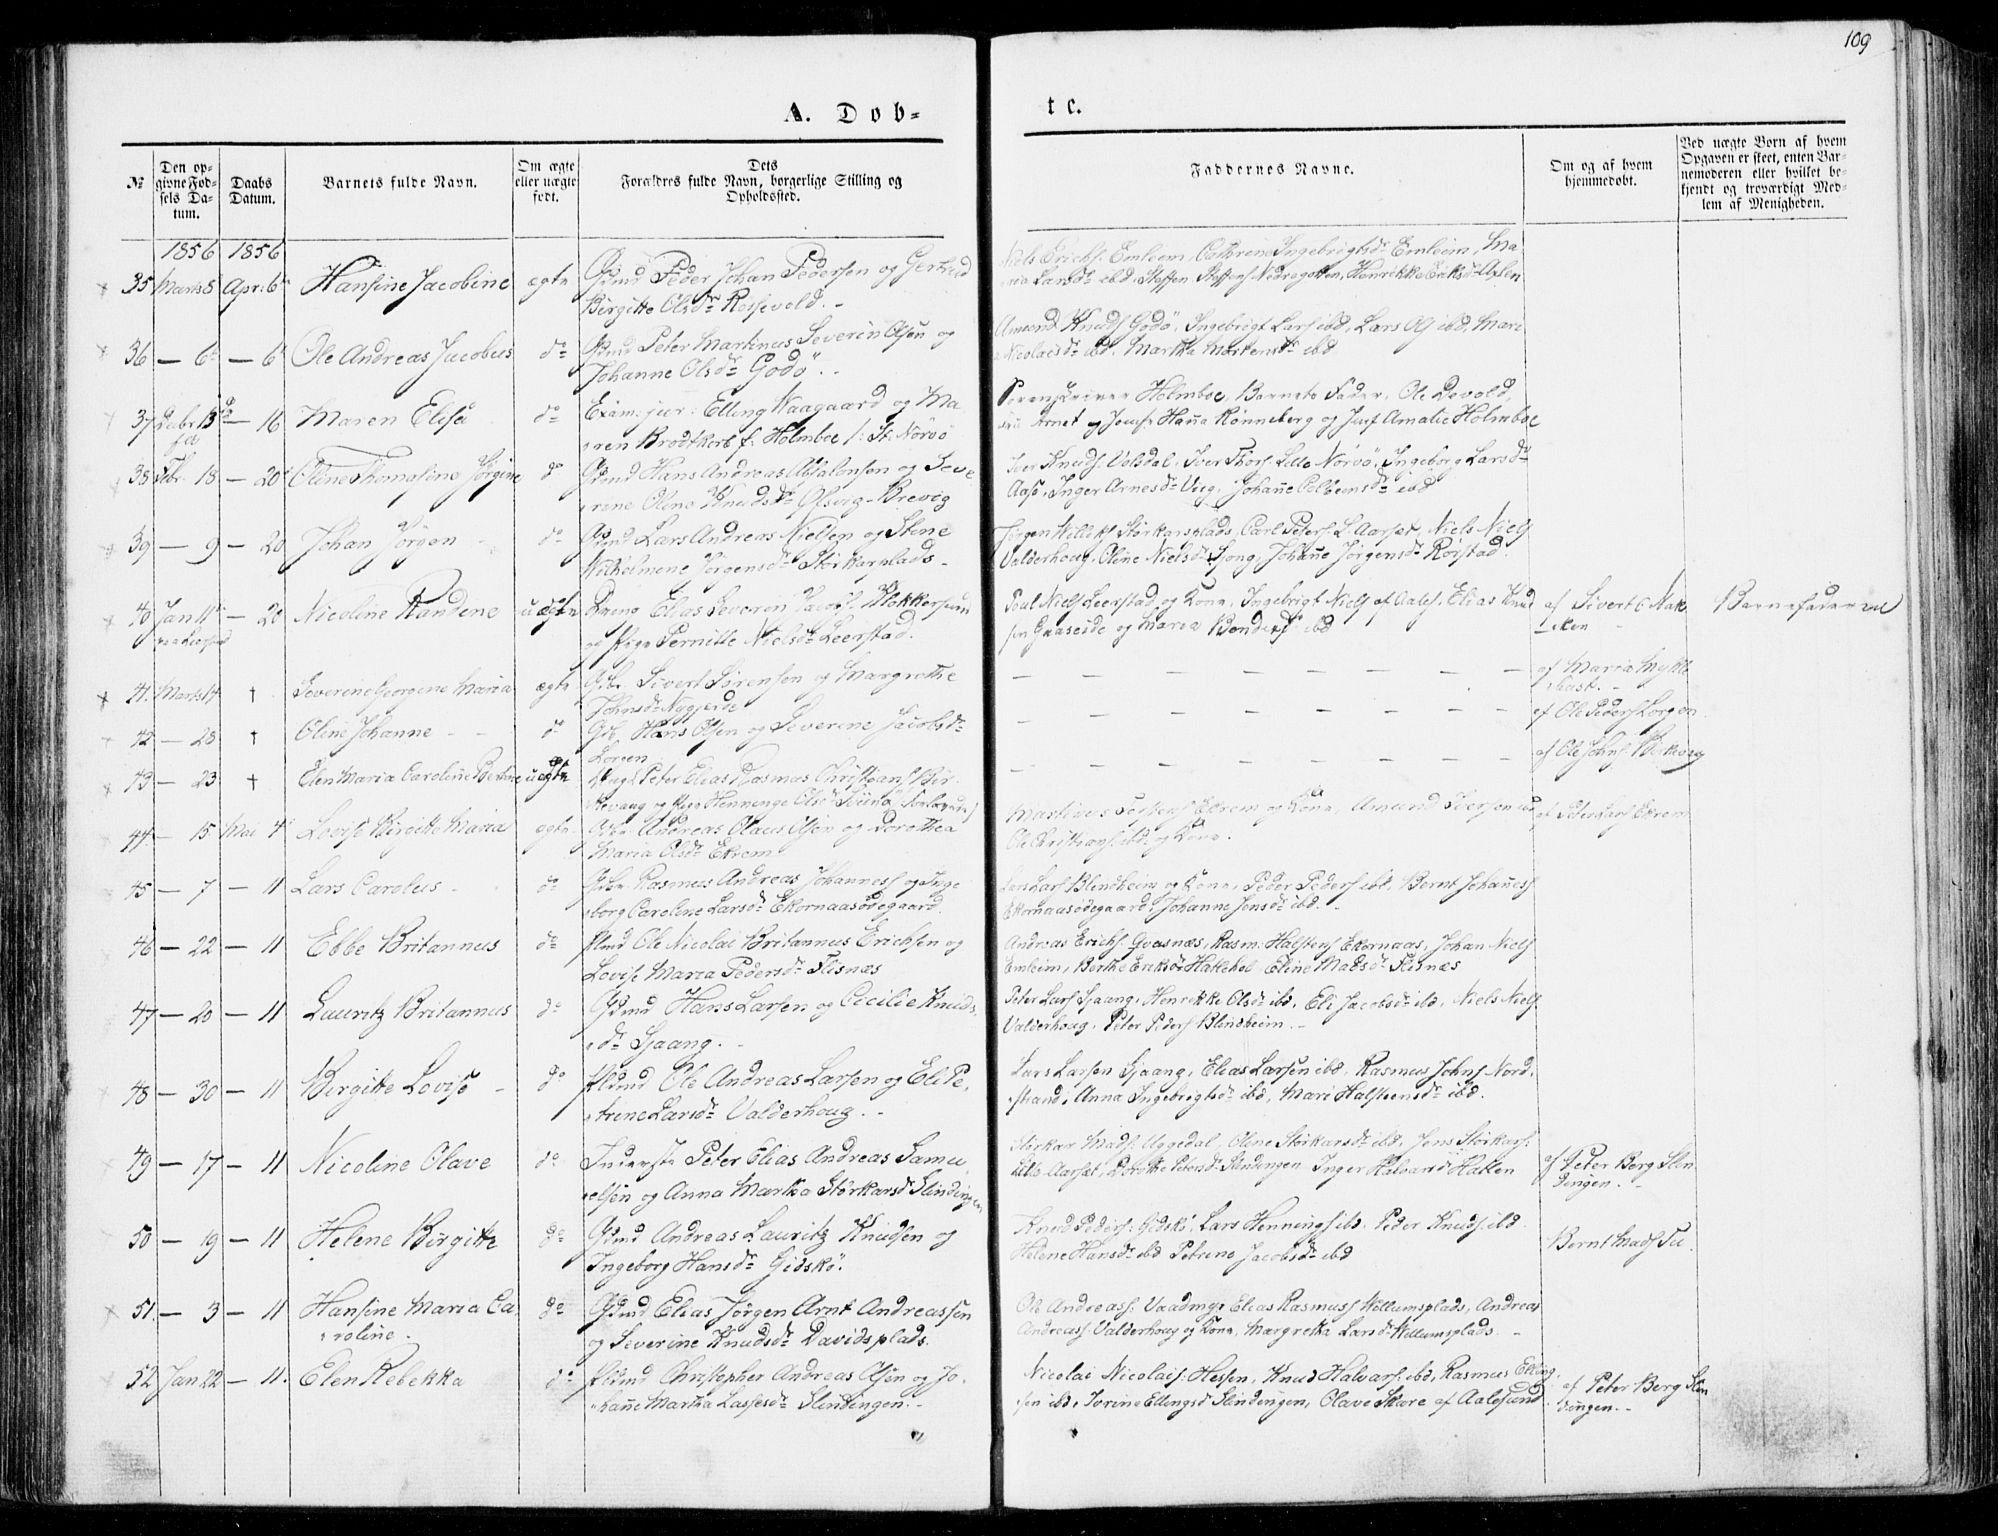 109
A. Døb-
te.
№
Den op-
givne Fød-
sels Da-
tum.
Daabs
Datum.
Barnets fulde Navn.
Om ægte
eller uægte
født.
Dets
Forældres fulde Navn, borgerlige Stilling og
Opholdssted.
Faddernes Navne.
Om og af hvem
hjemmedøbt.
Ved uægte Børn af hvem
Opgaven er skeet, enten Bar-
nemoderen eller hvilket be-
kjendt og troværdigt Med-
lem af Menigheden.
1856 1856
35 Marts 8 Apr: 6 Hansine Jacobine ægte Gdmd Peder Johan Pedersen og Gertrud
Birgitte Olsdr Rossevold.
Niels Erichs: Emleim, Cathrine Ingebrigtsdr Emleim, Ma-
ria Larsdr ibd, Steffen Steffens Nedregotten, Henrikke Eriksdr Axlen
36 — 6 — 6 Ole Andreas Jacobus do Gdmd Peter Martinus Severin Olsen og
Johanne Olsdr Godö.
Amund Knuds Godö, Ingebrigt Lars ibd, Lars Ols ibd,
Nicolaisdr ibd, Martha Mortensdr ibd
37 — 16 Maren Elisa do Exam: jur: Elling Waagaard og Ma-
ren Brodtkorb f: Holmboe /: St: Nörvö
Sorenskriver Holmboe, Barnets Fader, Ole Devold,
og Hanna Rönneberg og Amalie Holmboe
38 Febr. 18 — 20 Oline Thomasine Jörgine do Gdmd Hans Andreas Absalonsen og Seve-
rine Oline Knudsdr Olsvig-Brevig
Iver Knuds: Volsdal, Iver Thors: Lille Norvö, Ingeborg Larsdr
Aasö, Inger Arnesdr Vieg, Johanne ibd
39 — 9 — 20 Johan Jörgen do Gdmd Lars Andreas Nielsen og Stine
Wilhelmine Jörgensdr Störkarplads
Jörgen Störkarsplads, Carl Peters: L. Aarset, Niels Niels
Valderhoug, Oline Nielsdr Gjong, Johanne Jörgensdr Rörstad.
40 Jan 11 — 20 Nicoline Randine uægte Dreng Elias Severin Jacobs: Klokkersund
og Pige Pernille Nielsdr Leerstad.
Poul Niels Leerstad og Kone, Ingebrigt Niels af Aales, Elias Knud-
sen Gaaseide og Maria ibd
af Sivert C Mak-
Barnefaderen
41. Marts 14 † Severine Georgine Maria ægte Gbr Sivert Sörensen og Margrethe
Johnsdr Nygjerde
— — — — — — — —
af Maria Mykle-
bust.
42 — 28 † Oline Johanne do Gbr Hans Olsen og Severine Jacobsdr
Lorgen
— — — — — — — —
af Ole Peders Lorgen
43 — 23 † Elen Maria Caroline Bertine uægte Ungk Peter Elias Rasmus Christians
og Pige Henninge Olsdr
— — — — — — — —
af Ole Johns:
44 — 15 Mai 4 Lovise Birgitte Maria ægte Gbr Andreas Olaus Olsen og Dorothea
Maria Olsdr Ekrem
Martinus Ekrem og Kone, Amund Iversen ibd
Ole Christians: ibd og Kone.
af Peter Lars Ekrem
45 — 7 — 11 Lars Carolus do Gbr Rasmus Andreas Johanness og Inge-
borg Caroline Larsdr Ekornaasödegaard
Lars Lars Blindheim og Kone, Peder Peders ibd, Bernt Johanness
Ekornaasödegaard, Johanne Jensdr ibd.
46 — 22 — 11 Ebbe Britannus do Plmd Ole Nicolai Britannus Erichsen og
Lovise Maria Pedersdr Flisnæs
Andreas Erichs: Gvasnæs, Rasm: Halstens Ekornaas, Johan Niels
Emleim, Berthe Eriksdr Hatlehol Eline Madsdr Flisnæs
47 — 20 — 11 Lauritz Britannus do Gdmd Hans Larsen og Cicilie Knuds-
dr Gjaang.
Peter Lars Gjaang, Henrikke Olsdr ibd, Eli Jacobsdr ibd, Niels Niels
Valderhoug, Peter Peders Blindheim.
48 — 30 — 11 Birgitte Lovise do Plmd Ole Andreas Larsen og Eli Pe-
trine Larsdr Valderhoug.
Lars Larsen Gjaang, Elias Larsen ibd, Rasmus Johns Nord-
strand, Anna Ingebrigtsdr ibd, Mari Halstensdr ibd.
49 — 17 — 11 Nicoline Olave do Inderste Peter Elias Andreas Samu-
elsen og Anna Martha Störkarsdr Slindingen
Störkar Mads: Uggedal, Oline Störkarsdr ibd, Jens Störkars:
Lille Aarset, Dorothe Petersdr Slindingen Inger Halvard Hatlen
af Peter Berg Slin-
dingen.
50 — 19 — 11 Helene Birgitte do Gdmd Andreas Lauritz Knudsen og
Ingeborg Hansdr Gidskö.
Knud Peders: Gidskö, Lars Hennings ibd. Peder Knuds ibd
Helene Hansdr ibd Petrine Jacobsdr ibd
Bernt Mads
51 — 3 — 11 Hansine Maria Ca-
roline.
do Gdmd Elias Jörgen Arnt Andreassen
og Severine Knudsdr Davidsplads.
Ole Andreass: Vaadmyr Elias Rasmuss Willumsplads, Andreas
Andreass: Valderhoug og Kone, Margretha Larsdr Willumsplads.
52 Jan 22 — 11. Elen Rebekka do Plmd Christopher Andreas Olsen og Jo-
hanne Martha Lassesdr Slindingen.
Nicolai Nicolais: Hessen, Knud Halvors: ibd, Rasmus Elling-
sen ibd, Torine Ellingsd Slindingen, Olave Skare af Aalesund
af Peter Berg Slin-
dingen.